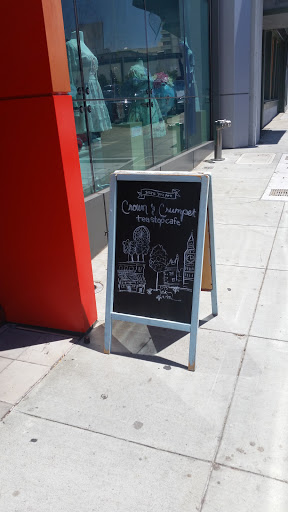 Crown & Crumpet
tea stop cafe